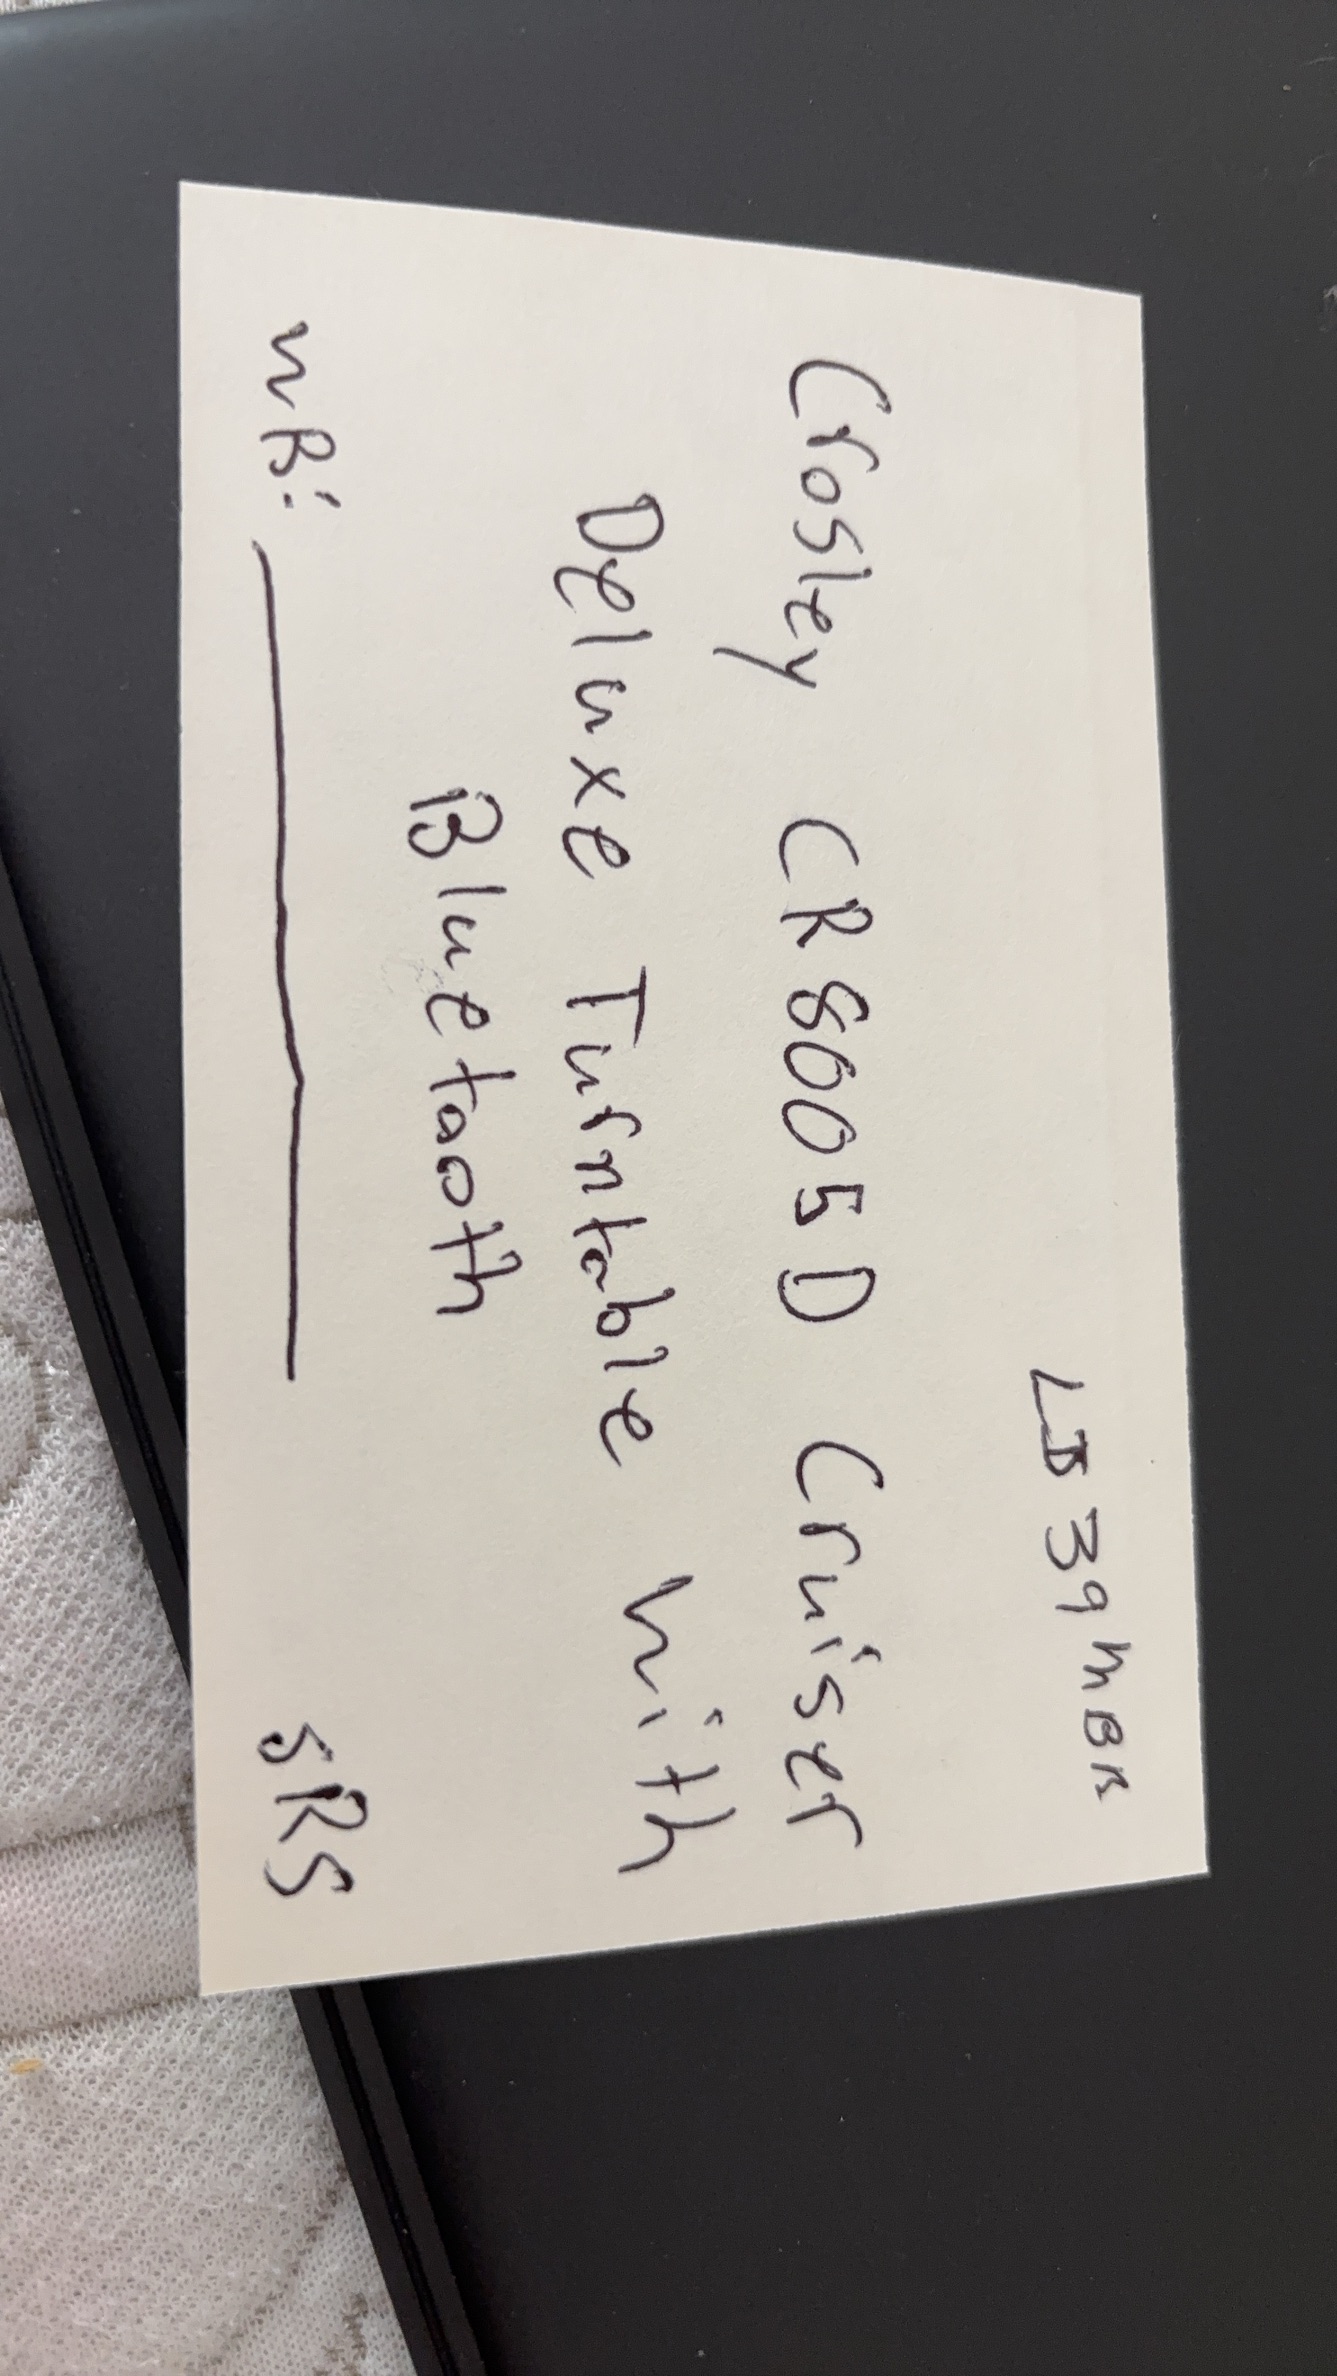 LD39MBR
Crosley CR8005D Cruiser
Deluxe Turntable with
Bluetooth
WB: SRS